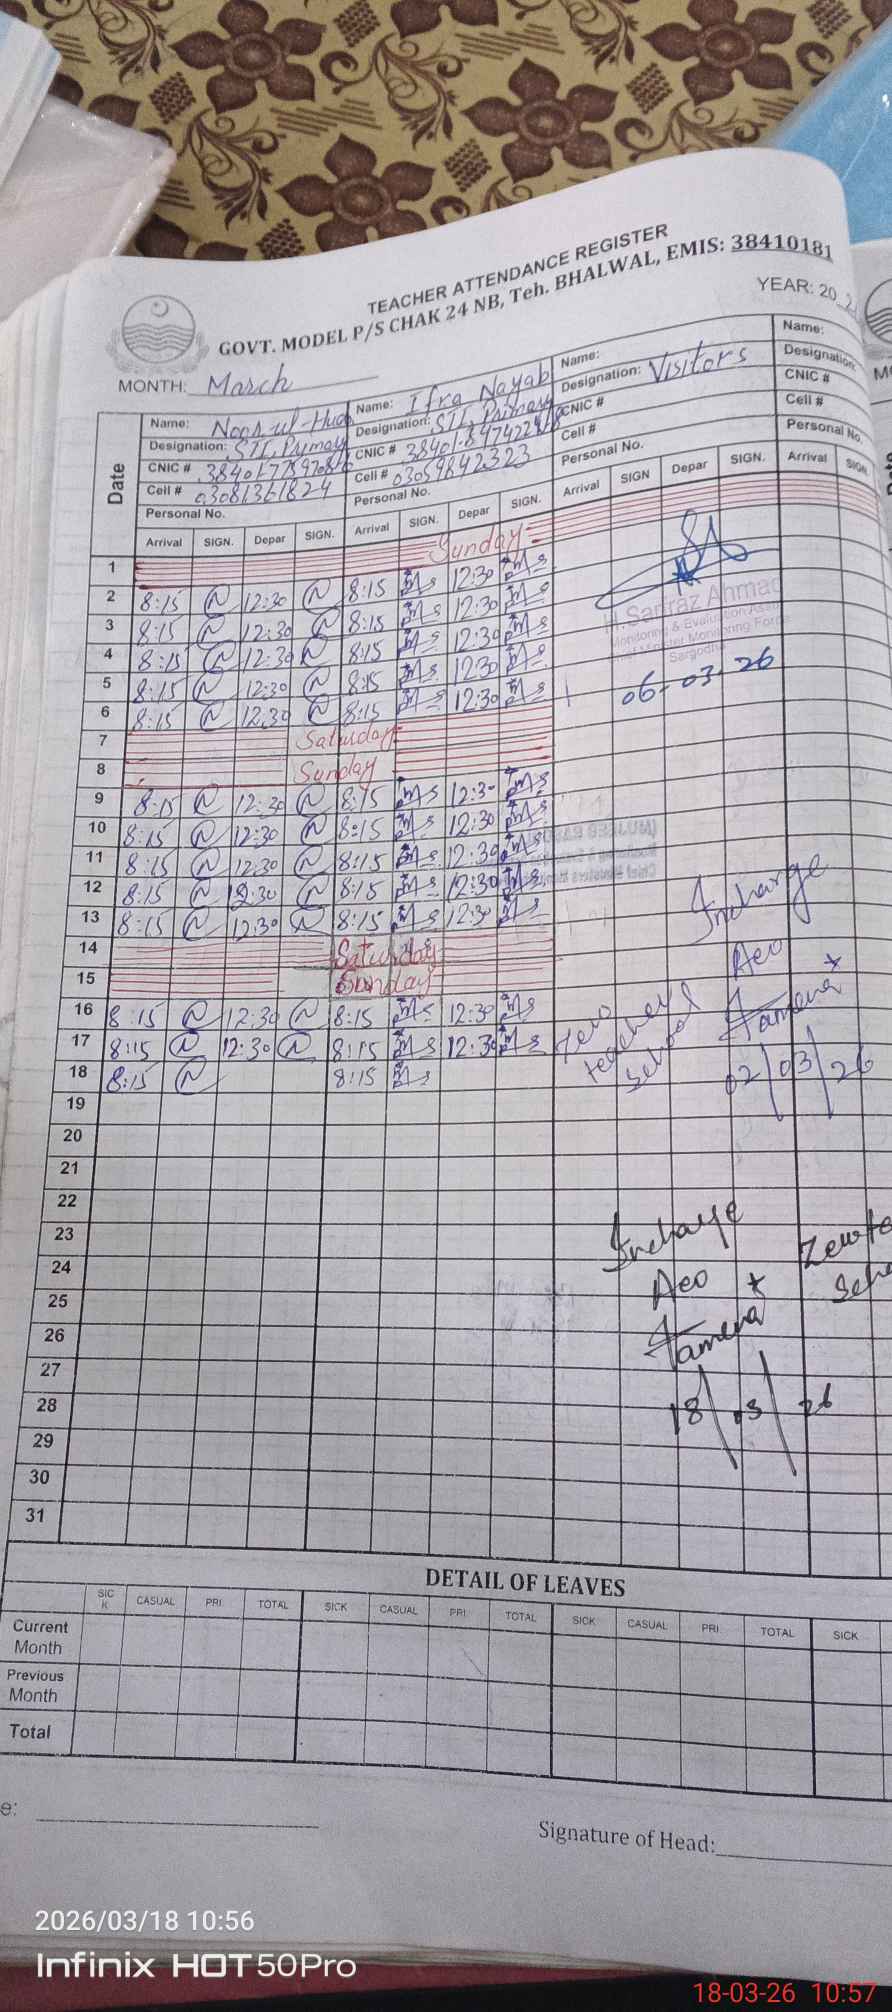 TEACHER ATTENDANCE REGISTER
GOVT. MODEL P/S CHAK 24 NB, Teh. BHALWAL, EMIS: 38410181
YEAR: 20
MONTH: March
Date
Name: Noor-ul-Huda
Designation: STI, Primary
CNIC #
Cell # 03081361824
Personal No.
Name: Ifra Nayab
Designation: STI, Primary
CNIC #
Cell # 03059842323
Personal No.
Name:
Designation: Visitors
CNIC #
Cell #
Personal No.
Name:
Designation
CNIC #
Cell #
Personal No.
Arrival SIGN. Depar SIGN. Arrival SIGN. Depar SIGN. Arrival SIGN Depar SIGN. Arrival SIGN.
1 Sunday
2 8:15 12:30 8:15 12:30
3 8:15 12:30 8:15 12:30
4 8:15 12:30 8:15 12:30
5 8:15 12:30 8:15 12:30
6 8:15 12:30 8:15 12:30
H.Sarfraz Ahmad
Monitoring & Evaluation
Chief Minister Monitoring Force
Sargodha
06-03-26
7 Saturday
8 Sunday
9 8:15 12:30 8:15 12:30
10 8:15 12:30 8:15 12:30
11 8:15 12:30 8:15 12:30
12 8:15 12:30 8:15 12:30
13 8:15 12:30 8:15 12:30
14 Saturday
15 Sunday
16 8:15 12:30 8:15 12:30
17 8:15 12:30 8:15 12:30
18 8:15 8:15
Incharge
Aeo
Zero
teachers
school
02/03/26
19
20
21
22
23
24
25
26
27
28
29
30
31
Incharge
Aeo
18/03/26
DETAIL OF LEAVES
SICK CASUAL PRI TOTAL SICK CASUAL PRI TOTAL SICK CASUAL PRI TOTAL SICK
Current Month
Previous Month
Total
e:
Signature of Head:
2026/03/18 10:56
Infinix HOT 50Pro
18-03-26 10:57